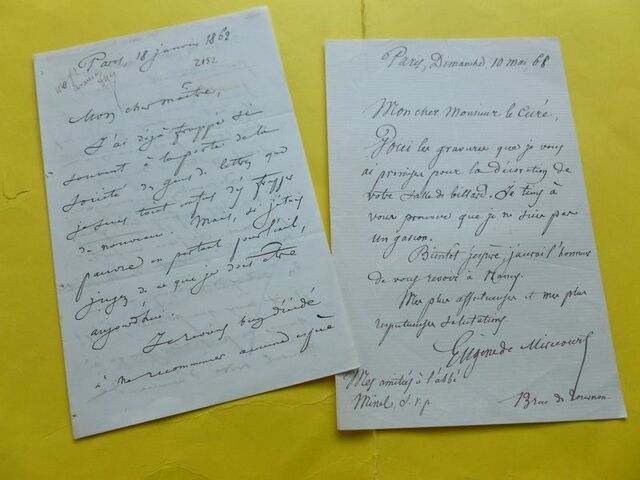 Paris, 18 janvier 1862
2152
Mon cher maître,
J'ai déjà frappé si
souvent à la porte de la
société des gens de lettres que
je suis tout confus d'y frapper
de nouveau. Mais, si j'étais
pauvre en portant pour l'exil,
jugez de ce que je dois être
aujourd'hui.
Je reviens bien décidé
à ne recommencer aucune espèce
Paris, Dimanche 10 mai, 68
Mon cher Monsieur le Curé,
Voici les gravures que je vous
ai promises pour la décoration de
votre salle de billard. Je tiens à
vous prouver que je ne suis pas
un gascon.
Bientôt j'espère, j'aurai l'honneur
de vous revoir à Nancy.
Mes plus affectueuses et mes plus
respectueuses salutations.
Eugène de Mirecourt
Mes amitiés à l'abbé
Minel, s.v.p
13 rue de Tournon